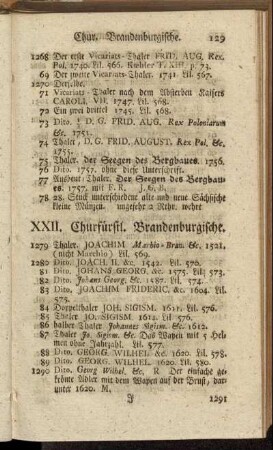 Chur. Brandenburgische. 129
1268 Der erste Vicariats-Thaler FRID. AUG. Rex
Pol. 1740. Lil. 566. Kœhler T. XIII. p. 73.
69 Der zweite Vicariats-Thaler. 1741. Lil. 567.
1270 Derselbe.
71 Vicariats-Thaler nach dem Absterben Kaisers
CAROLI, VII. 1747. Lil. 568.
72 Ein zwei drittel 1745. Lil. 568.
73 Dito, D. G. FRID. AUG. Rex Poloniarum
&c. 1751.
74 Thaler, D. G. FRID. AUGUST. Rex Pol. &c.
1755.
75 Thaler. der Seegen des Bergbaues. 1756.
76 Dito. 1757. ohne diese Unterschrift.
77 Ausbeut Thaler. Der Seegen des Bergbau-
es. 1757. mit F. R. J. G. B.
78 28. Stuck unterschiedene alte und neue Sächsische
kleine Münzen. ungefehr 2 Rthr. wehrt
XXII. Churfürstl. Brandenburgische.
1279 Thaler. JOACHIM Marhio Bran. &c. 1521.
(nicht Marchio) Lil. 569.
1280 Dito. JOACH. II. &c. 1542. Lil. 570.
81 Dito. JOHANS GEORG. &c. 1575. Lil; 573.
82 Dito. Johans Georg. &c. 1587. Lil. 574.
83 Dito. JOACHIM FRIDERIC. &c. 1604. Lil.
575.
84 Doppelthaler JOH. SIGISM. 1611. Lil. 576.
85 Thaler JO. SIGISM. 1611. Lil. 576.
86 halber Thaler Johannes Sigism. &c. 1612.
87 Thaler Jo. Sigism. &c. Das Wapen mit 5 Hel-
men ohne Jahrzahl. Lil. 577.
88 Dito. GEORG. WILHEL. &c. 1620. Lil. 578.
89 Dito. GEORG. WILHEL. 1620. Lil. 580.
1290 Dito. Georg Wilhel. &c, R Der einfache ge-
krönte Adler mit dem Wapen auf der Brust, dar-
unter 1620. M.
J 1291